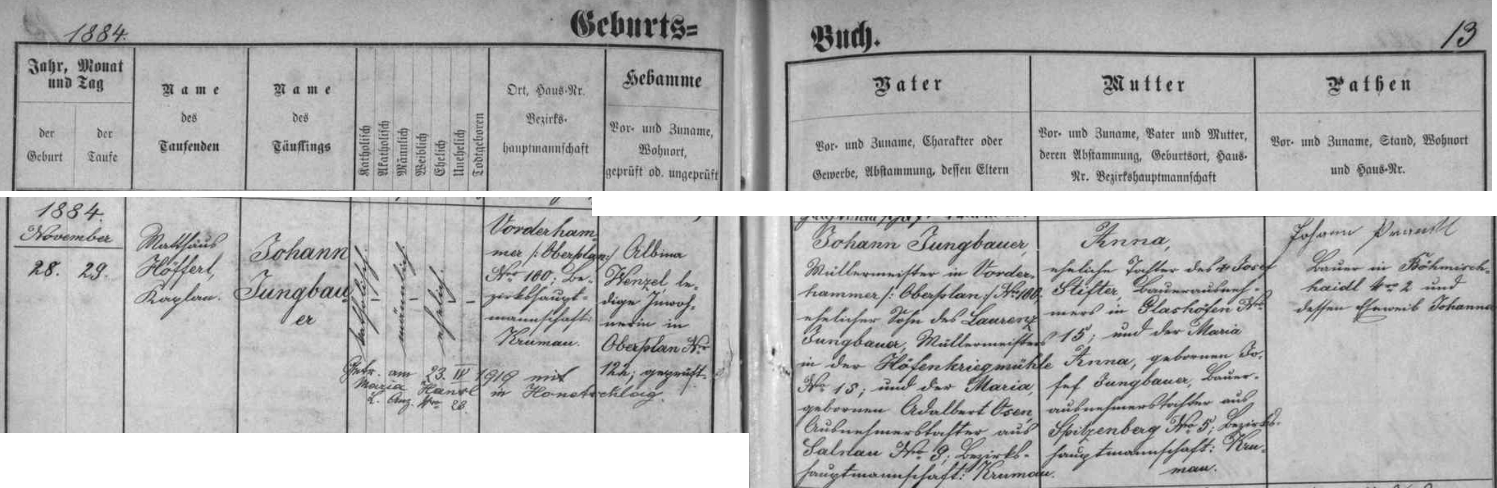 1884.
Geburts=
Jahr, Monat
und Tag
der
Geburt
der
Taufe
Name
des
Taufenden
Name
des
Täuflings
Katholisch
Akatholisch
Männlich
Weiblich
Ehelich
Unehelich
Todtgeboren
Ort, Haus-Nr.
Bezirks-
hauptmannschaft
Hebamme
Vor- und Zuname,
Wohnort,
geprüft od. ungeprüft
1884.
November
28. 29.
Matthäus
Höffert,
Kaplan.
Johann
Jungbau
er
katholisch.
männlich
ehelich.
Vorderham
mer /: Oberplan :/
No 100; Be-
zirkshaupt-
mannschaft:
Krumau.
Albina
Wenzel, le-
dige Inwoh-
nerin in
Oberplan No
122; geprüft.
Getr. am 23. IV 1919 mit
Maria Hansl in Honetschlag.
L. No 26
Buch.
13
Vater
Vor- und Zuname, Charakter oder
Gewerbe, Abstammung, dessen Eltern
Mutter
Vor- und Zuname, Vater und Mutter,
deren Abstammung, Geburtsort, Haus-
Nr. Bezirkshauptmannschaft
Pathen
Vor- und Zuname, Stand, Wohnort
und Haus-Nr.
Johann Jungbauer,
Müllermeister in Vorder-
hammer /: Oberplan :/ No 100,
ehelicher Sohn des Laurenz
Jungbauer, Müllermeisters
in der Höfenkriegmühle
No 15; und der Maria,
gebornen Adalbert Osen,
Ausnehmerstochter aus
Salnau No 9; Bezirks-
hauptmannschaft: Krumau.
Anna,
eheliche Tochter des Josef
Stifter, Bauerausneh-
mers in Glashöfen No
15; und der Maria
Anna, gebornen Jo-
sef Jungbauer, Bauer-
ausnehmerstochter aus
Spitzenberg No 5; Bezirks-
hauptmannschaft: Kru-
mau.
Johann
Bauer in Böhmisch-
haidl No 2 und
dessen Eheweib Johanna